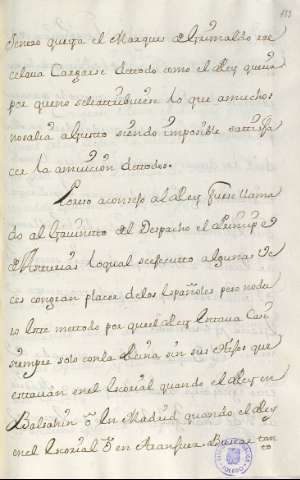 153
quería el Marques de Grimaldo
Cargarse de todo como el Rey queria
por que no se le atribuiera lo que a muchos
no salia a gusto siendo imposible satisfa
cer la amvicion de todos.
aconsejo al Rey fuese llama
do al Gavinetto del Despacho el Principe
de Asturias lo qual se executto algunas Ve
ces con gran placer de los Españoles, pero no du
ro este mettodo por que el Rey estava Casi
siempre solo con la Reina sin sus Hijos que
estavan en el Escorial quando el Rey en
Balsahin ô en Madrid quando el Rey
en el Escorial ô en Aranjuez
to
TOLEDO